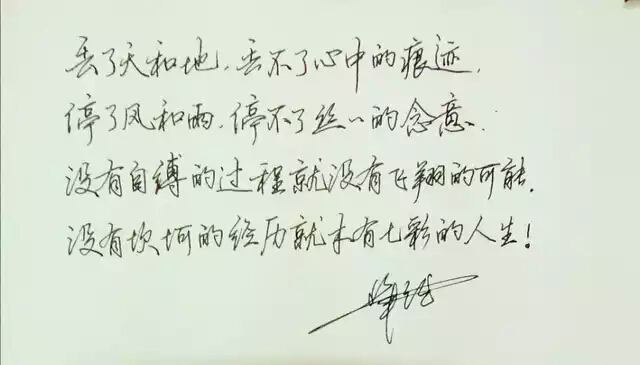 丢了天和地，丢不了心中的痕迹，
停了风和雨，停不了丝丝的念意。
没有自缚的过程就没有飞翔的可能，
没有坎坷的经历就未有七彩的人生！